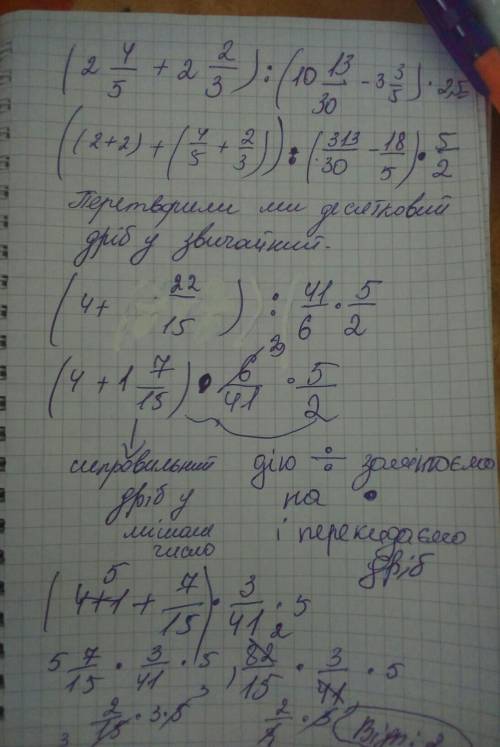 (2 4/5 + 2 2/3) : (10 13/30 - 3 3/5) · 2,5
((2+2) + (4/5 + 2/3)) : (313/30 - 18/5) · 5/2
Перетворили ми десятковий
дріб у звичайний.
(4 + 22/15) : 41/6 · 5/2
(4 + 1 7/15) · 6/41 · 5/2
неправильний дію ÷ замінюємо
дріб у на •
мішане і перекидаємо
число дріб
5
(4+1 + 7/15) · 3/41 · 5
5 7/15 · 3/41 · 5, 82/15 · 3/41 · 5
2/15 · 3 · 5